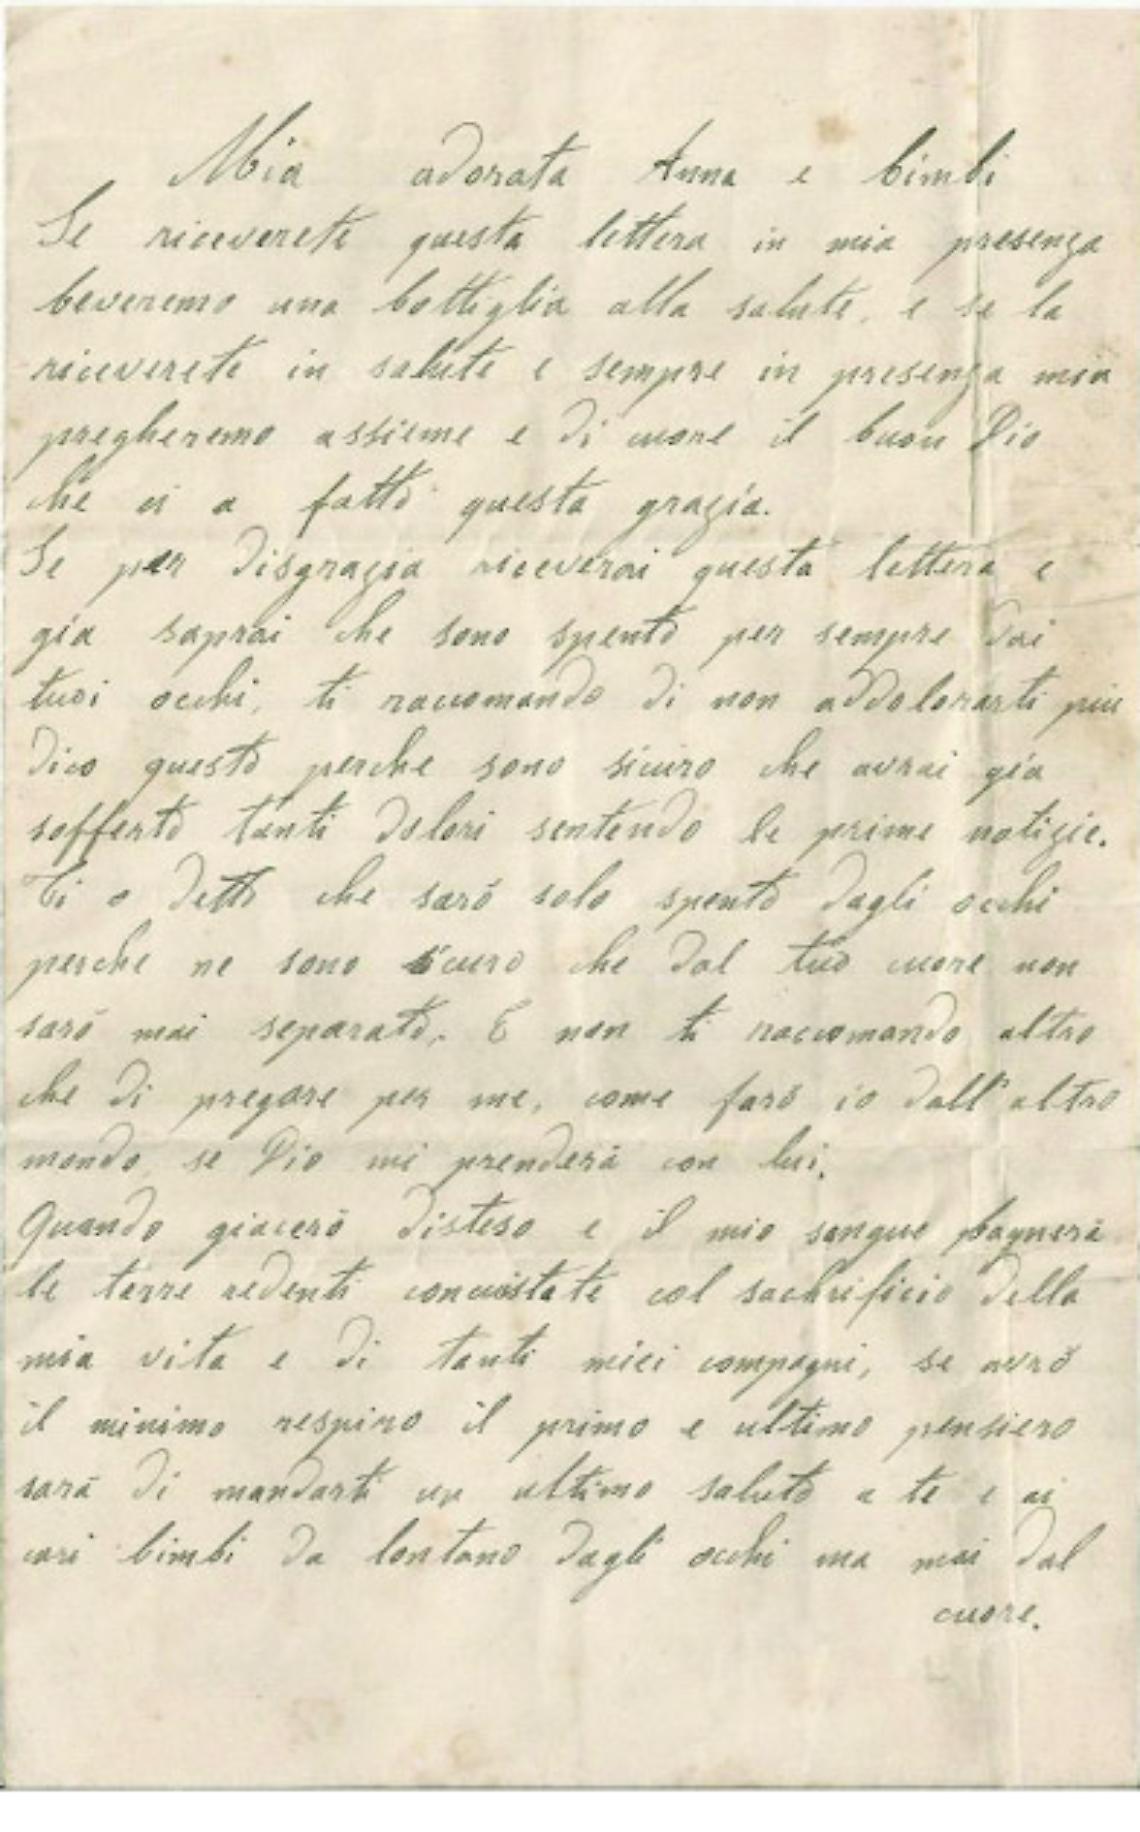 Mia adorata Anna e bimbi
Se riceverete questa lettera in mia presenza
beveremo una bottiglia alla salute, e se la
riceverete in salute e sempre in presenza mia
pregheremo assieme e di cuore il buon Dio
che ci a fatto questa grazia.
Se per disgrazia riceverai questa lettera e
gia saprai che sono spento per sempre dai
tuoi occhi, ti raccomando di non addolorarti piu
dico questo perche sono sicuro che avrai gia
sofferto tanti dolori sentendo le prime notizie.
Ti o detto che saró solo spento dagli occhi
perche ne sono sicuro che dal tuo cuore non
saró mai separato. E non ti raccomando altro
che di pregare per me, come faró io dall'altro
mondo se Dio mi prenderá con lui.
Quando giaceró disteso e il mio sangue bagnerá
le terre redenti conquistate col sachrificio della
mia vita e di tanti miei compagni, se avró
il minimo respiro il primo e ultimo pensiero
sará di mandarti un ultimo saluto a te e ai
cari bimbi da lontano dagli occhi ma mai dal
cuore.